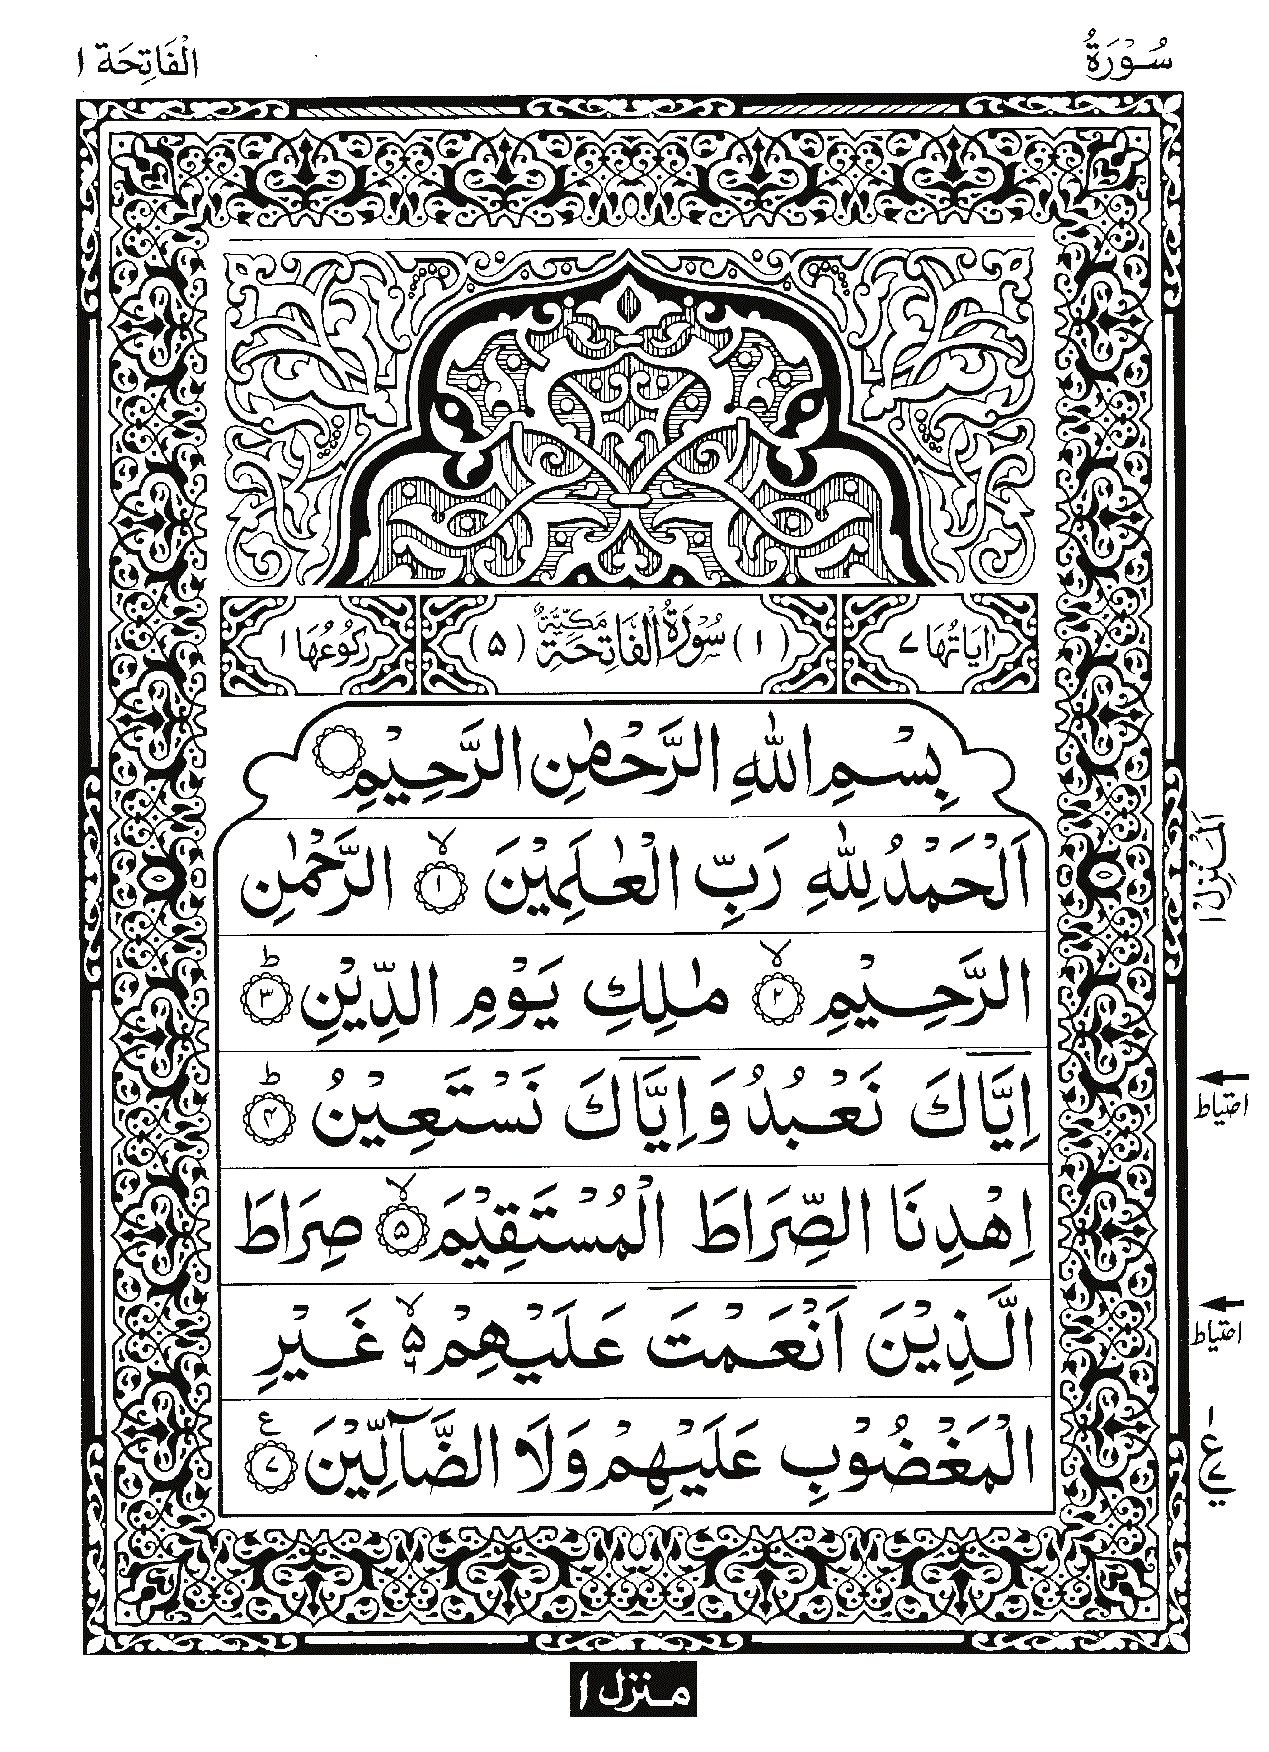 سُوْرَةُ الْفَاتِحَة ١
اٰيَاتُهَا ٧ (١) سُوْرَةُ الْفَاتِحَةِ مَكِّيَّةٌ (٥) رُكُوْعُهَا ١
بِسْمِ اللهِ الرَّحْمٰنِ الرَّحِيْمِ
اَلْحَمْدُ لِلّٰهِ رَبِّ الْعٰلَمِيْنَ ۙ ١ الرَّحْمٰنِ
الرَّحِيْمِ ۙ ٢ مٰلِكِ يَوْمِ الدِّيْنِ ؕ ٣
اِيَّاكَ نَعْبُدُ وَاِيَّاكَ نَسْتَعِيْنُ ؕ ۴
اِهْدِنَا الصِّرَاطَ الْمُسْتَقِيْمَ ۙ ۵ صِرَاطَ
الَّذِيْنَ اَنْعَمْتَ عَلَيْهِمْ ۙ۬ ۵ ٦ غَيْرِ
الْمَغْضُوْبِ عَلَيْهِمْ وَلَا الضَّآلِّيْنَ ٧ ع
اَلْمَنْزِلُ ١
احتياط
احتياط
١ ع ٧
منزل ١